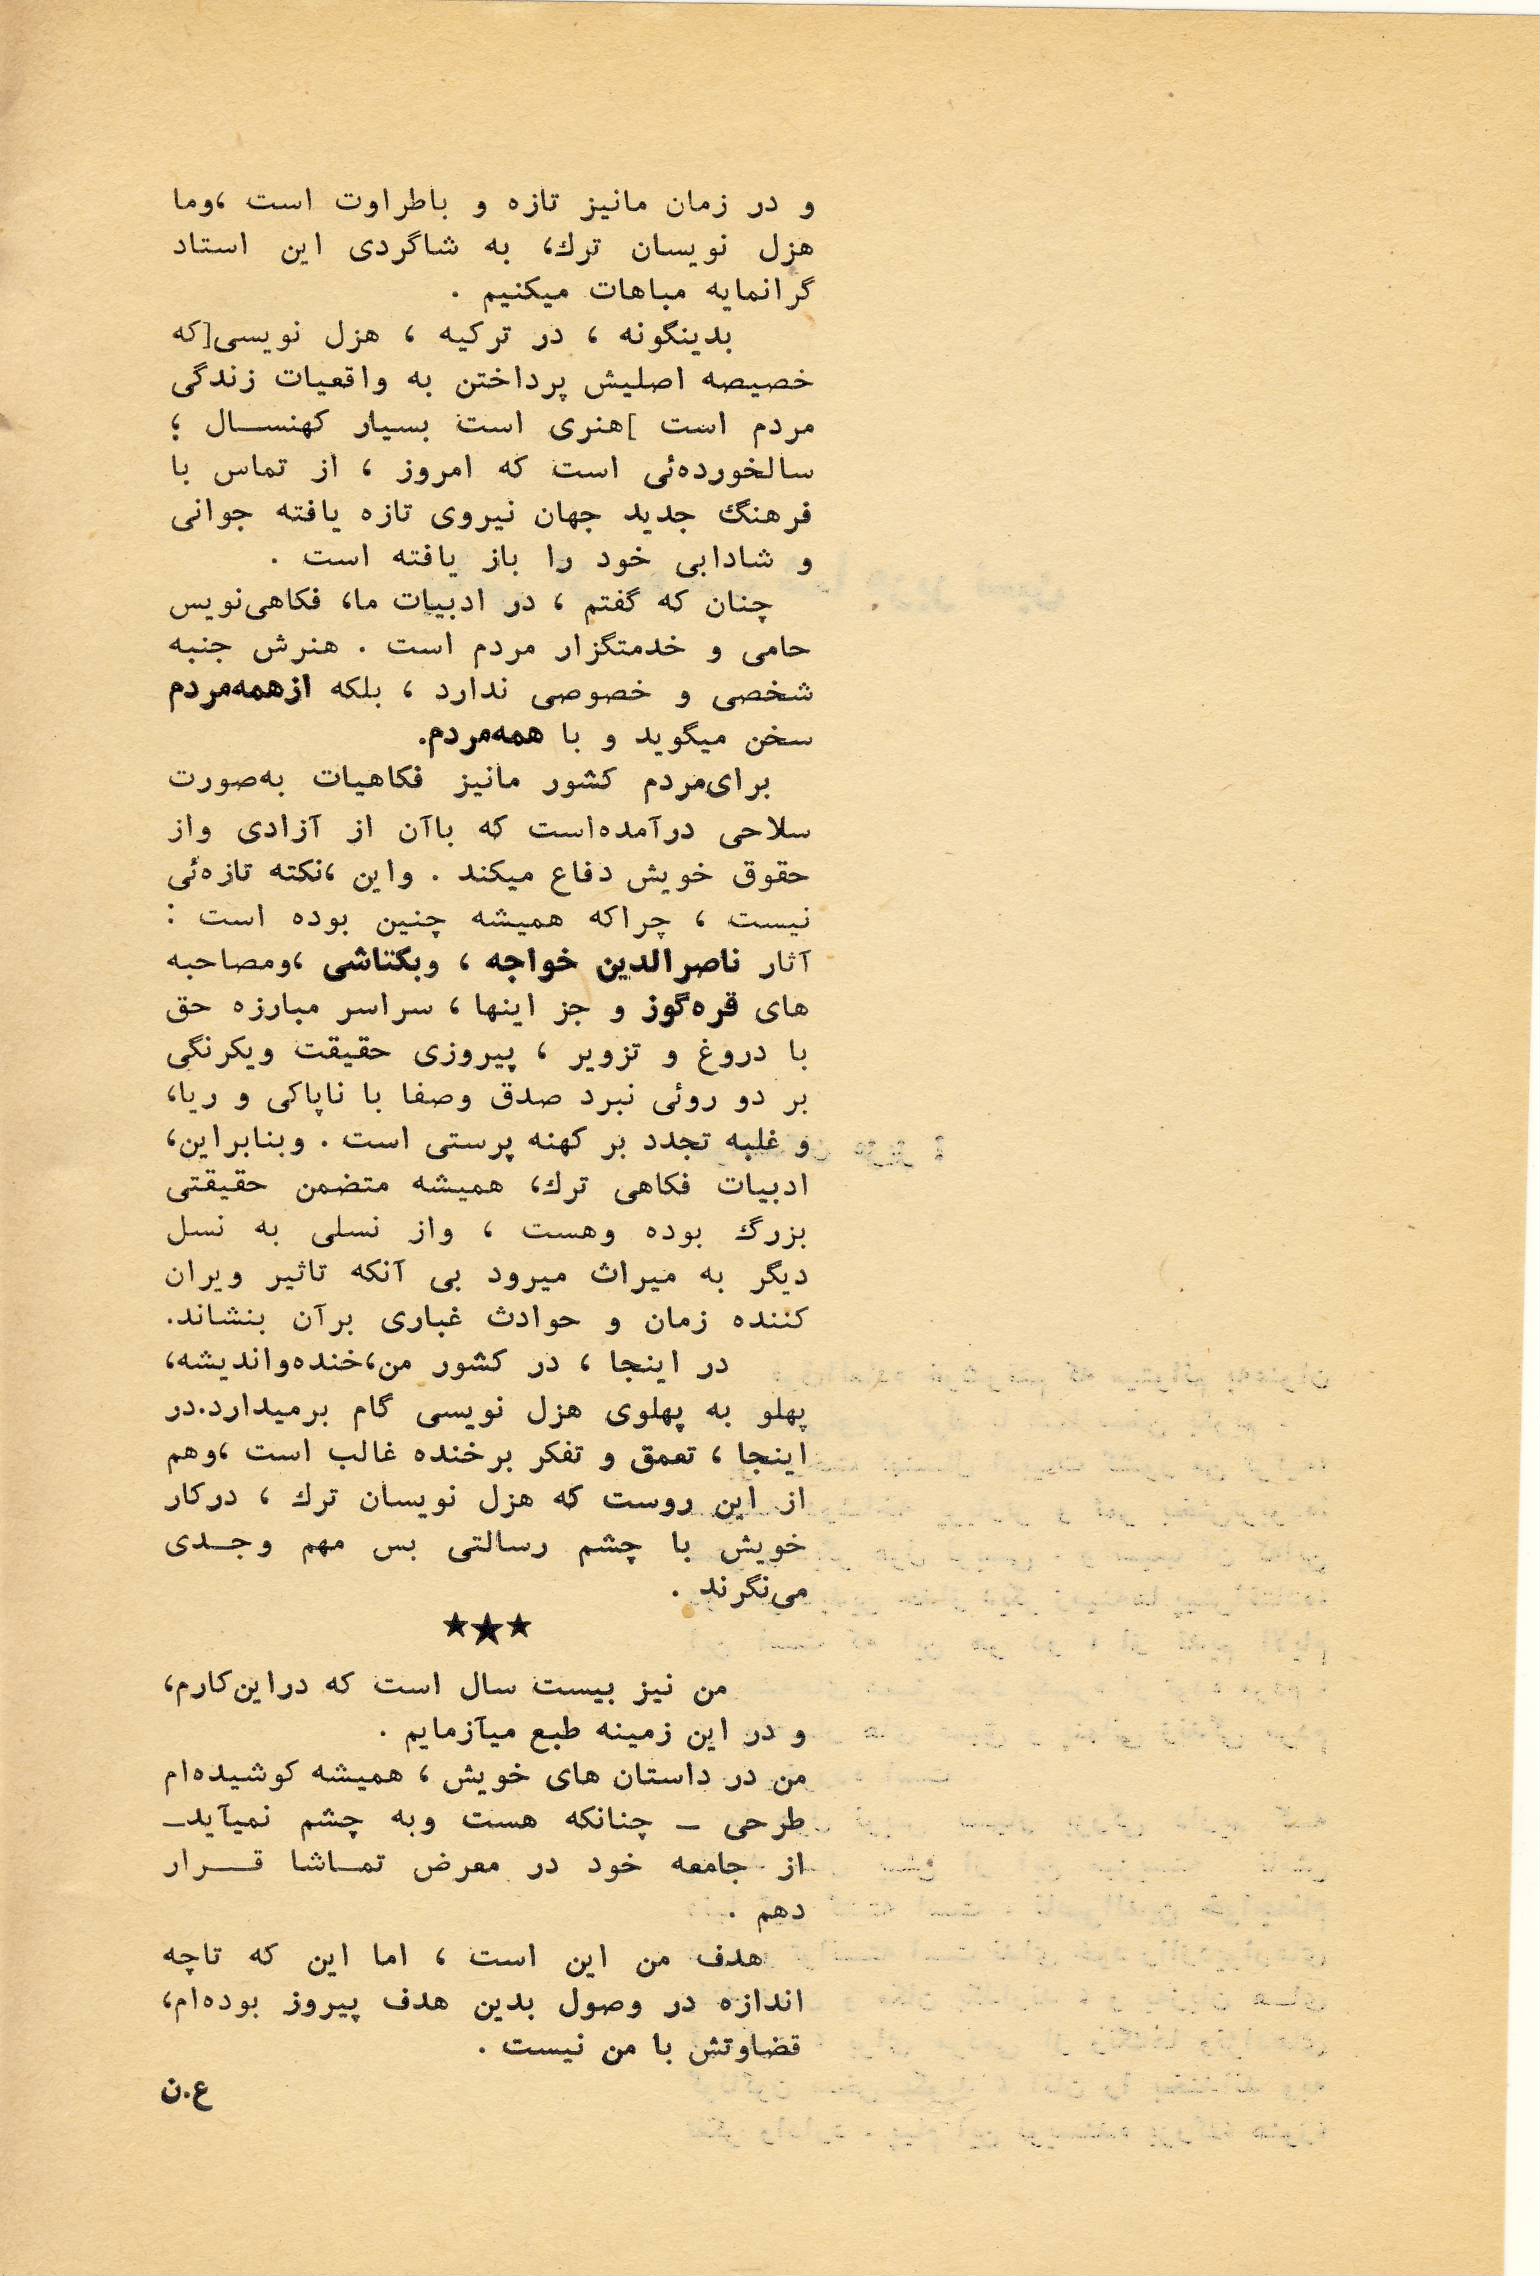 و در زمان مانیز تازه و باطراوت است ،وما
هزل نویسان ترك، به شاگردی این استاد
گرانمایه مباهات میکنیم .
بدینگونه ، در ترکیه ، هزل نویسی[که
خصیصه اصلیش پرداختن به واقعیات زندگی
مردم است ]هنری است بسیار کهنســال ؛
سالخورده‌ئی است که امروز ، از تماس با
فرهنگ جدید جهان نیروی تازه یافته جوانی
و شادابی خود را باز یافته است .
چنان که گفتم ، در ادبیات ما، فکاهی‌نویس
حامی و خدمتگزار مردم است . هنرش جنبه
شخصی و خصوصی ندارد ، بلکه ازهمه‌مردم
سخن میگوید و با همه‌مردم.
برای‌مردم کشور مانیز فکاهیات به‌صورت
سلاحی درآمده‌است که باآن از آزادی واز
حقوق خویش دفاع میکند . واین ،نکته تازه‌ئی
نیست ، چراکه همیشه چنین بوده است :
آثار ناصرالدین خواجه ، وبکتاشی ،ومصاحبه
های قره‌گوز و جز اینها ، سراسر مبارزه حق
با دروغ و تزویر ، پیروزی حقیقت ویکرنگی
بر دو روئی نبرد صدق وصفا با ناپاکی و ریا،
و غلبه تجدد بر کهنه پرستی است . وبنابراین،
ادبیات فکاهی ترك، همیشه متضمن حقیقتی
بزرگ بوده وهست ، واز نسلی به نسل
دیگر به میراث میرود بی آنکه تاثیر ویران
کننده زمان و حوادث غباری برآن بنشاند.
در اینجا ، در کشور من،خنده‌واندیشه،
پهلو به پهلوی هزل نویسی گام برمیدارد.در
اینجا ، تعمق و تفکر برخنده غالب است ،وهم
از این روست که هزل نویسان ترك ، درکار
خویش با چشم رسالتی بس مهم وجــدی
می‌نگرند .
★★★
من نیز بیست سال است که دراین‌کارم،
و در این زمینه طبع میآزمایم .
من در داستان های خویش ، همیشه کوشیده‌ام
طرحی ـ چنانکه هست وبه چشم نمیآید ـ
از جامعه خود در معرض تمــاشا قــرار
دهم .
هدف من این است ، اما این که تاچه
اندازه در وصول بدین هدف پیروز بوده‌ام،
قضاوتش با من نیست .
ع.ن